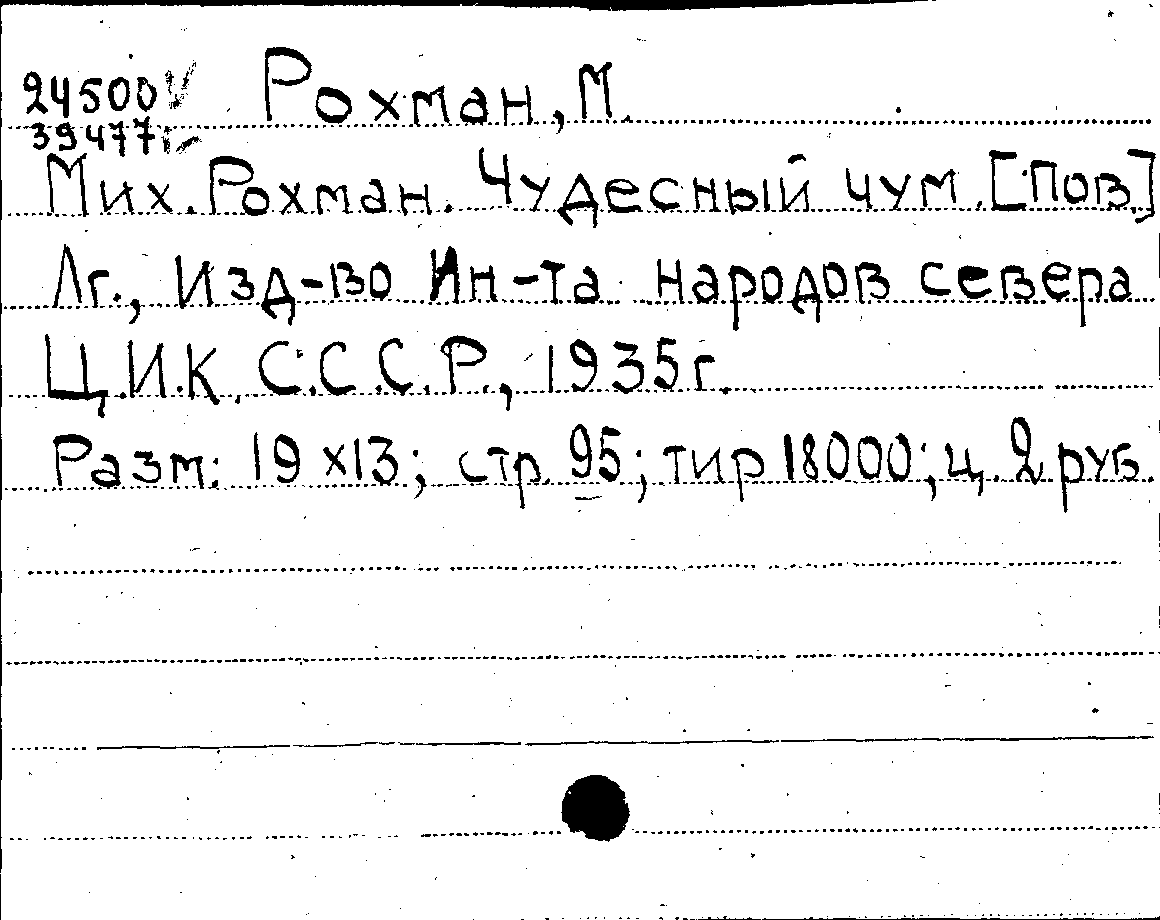 24500 Рохман, М.
39477
Мих. Рохман. Чудесный чум. [Пов.]
Лг., Изд-во Ин-та народов севера
Ц.И.К. С.С.С.Р., 1935г.
Разм: 19х13; стр. 95; тир 18000; ц. 2 руб.